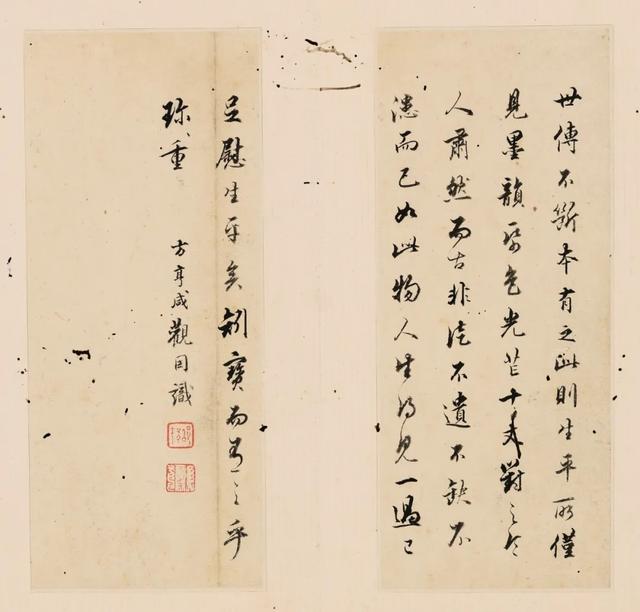 世傳不斷本有之此則生平所僅
見墨韻紙色光芒十丈對之令
人肅然而古非從不遺不缺不
漶而已如此物人生得見一過已
足慰生平矣矧寶而有之乎
珍重
方亨咸觀因識